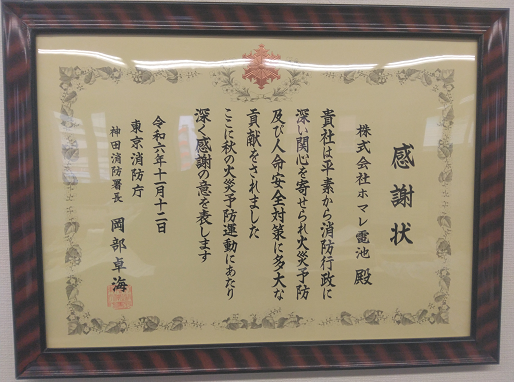 感謝状
株式会社ホマレ電池 殿
貴社は平素から消防行政に
深い関心を寄せられ火災予防
及び人命安全対策に多大な
貢献をされました
ここに秋の火災予防運動にあたり
深く感謝の意を表します
令和六年十一月十二日
東京消防庁
神田消防署長 岡部卓海